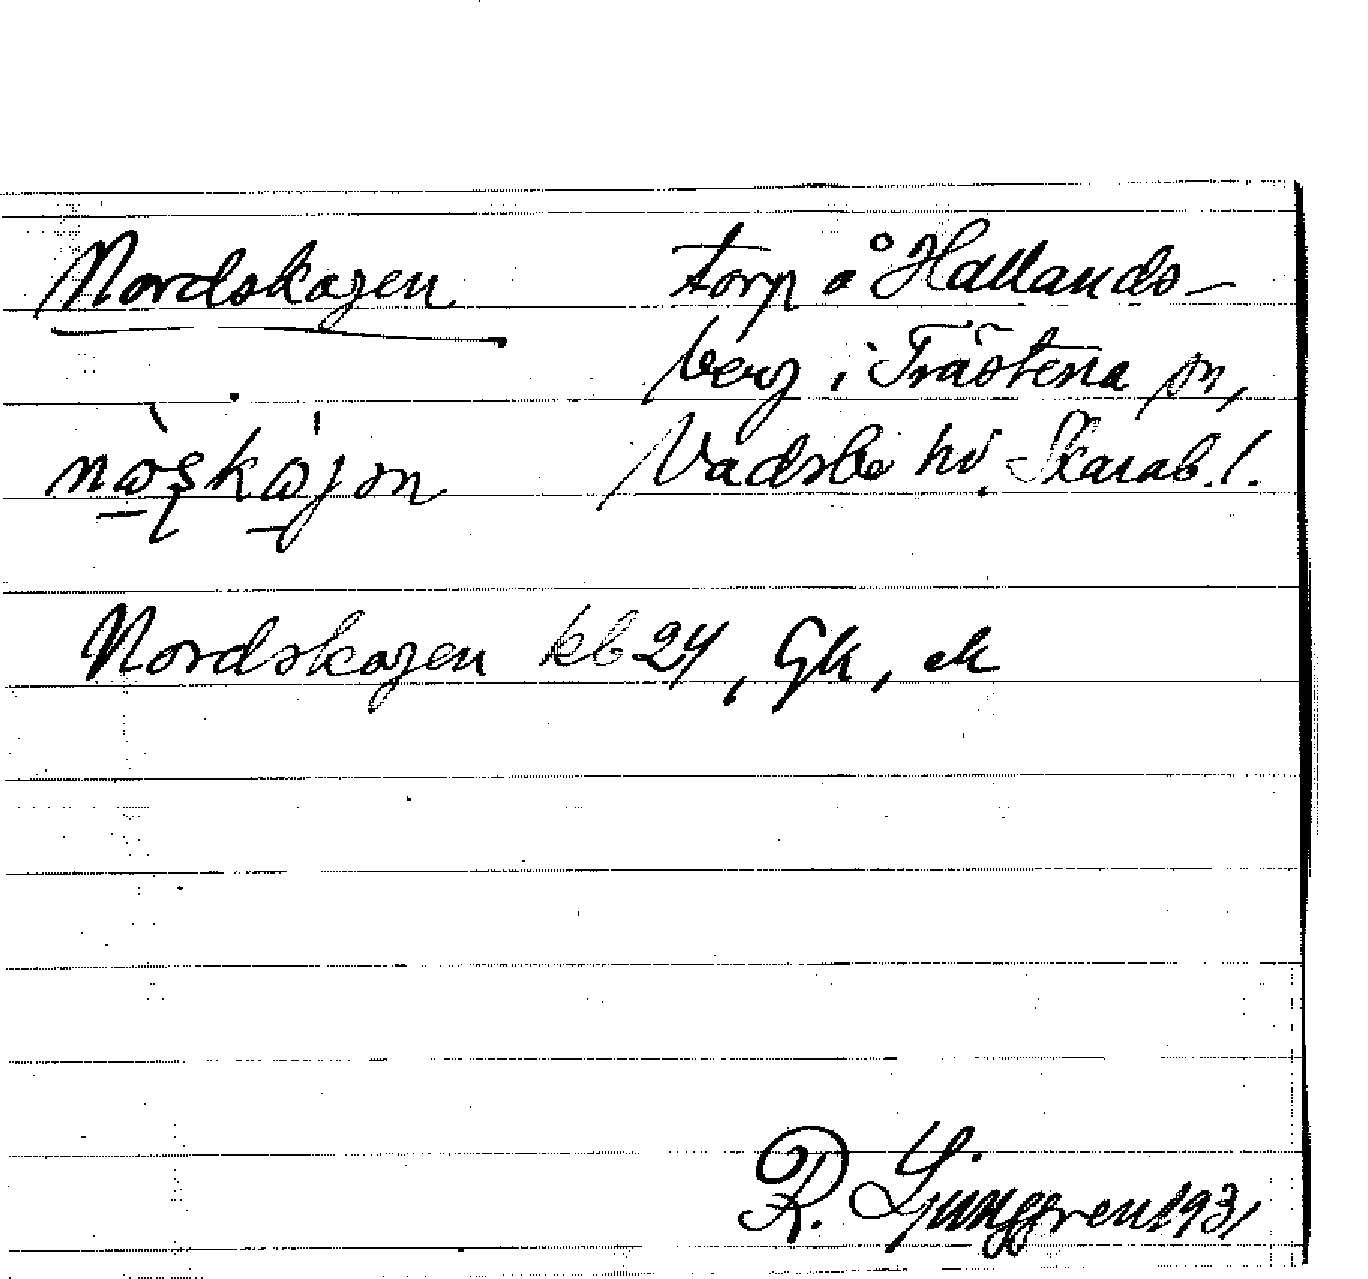 Nordskogen torp å Hallands-
berg i Trästena sn,
Vadsbo hd. Skarab. l.
Nordskogen kb 24, Gk, ek
R. Ljunggren 1931